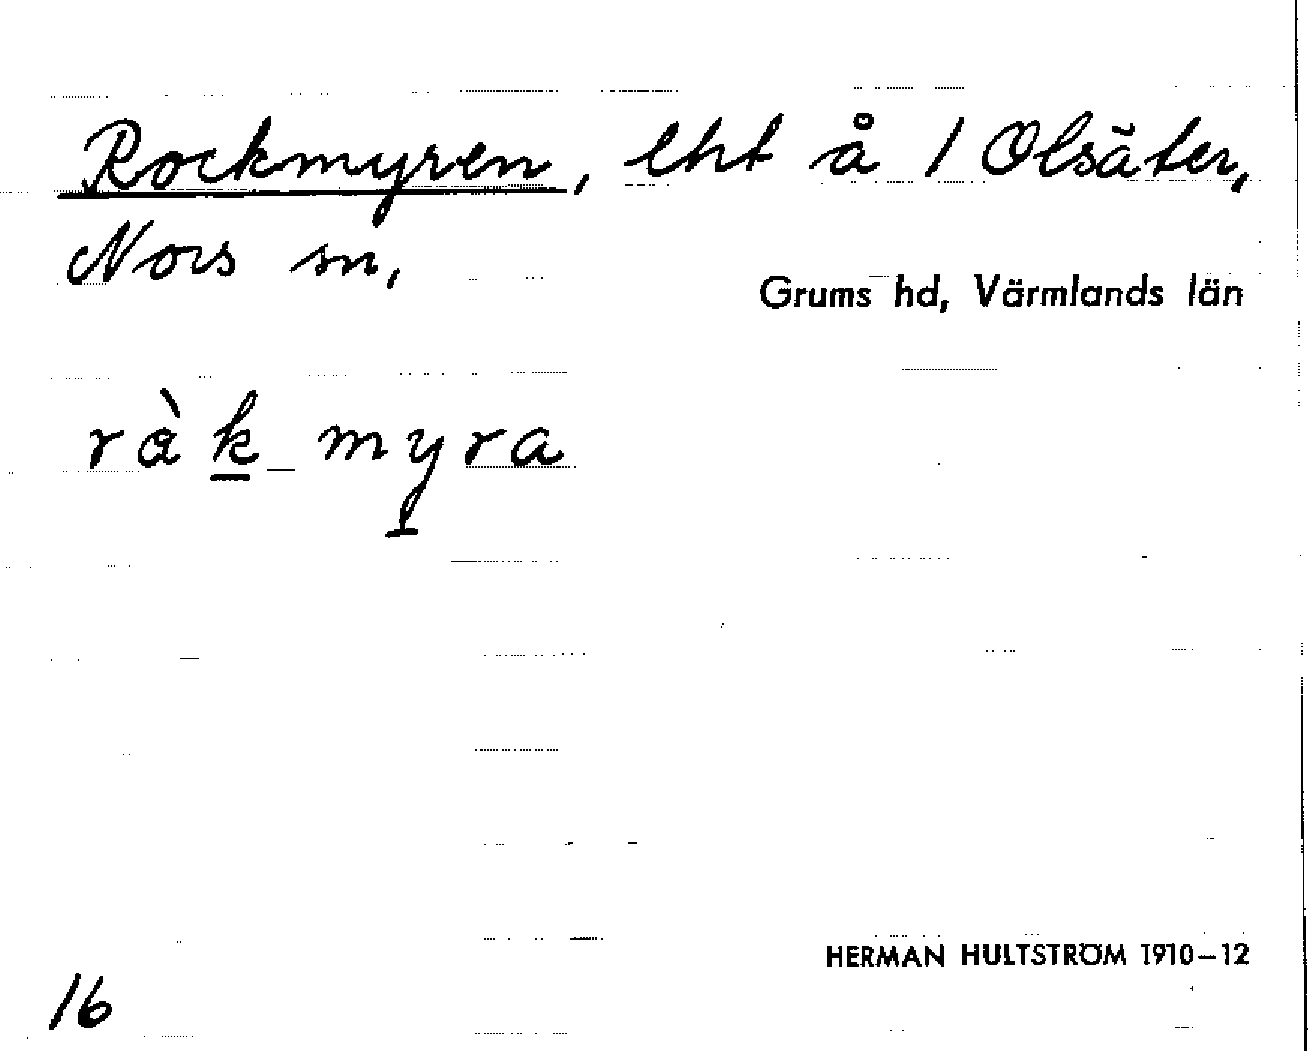 Rockmyren, lht å 1 Olsäter,
Nors sn,
Grums hd, Värmlands län
rà̀k_ myra
HERMAN HULTSTRÖM 1910–12
16